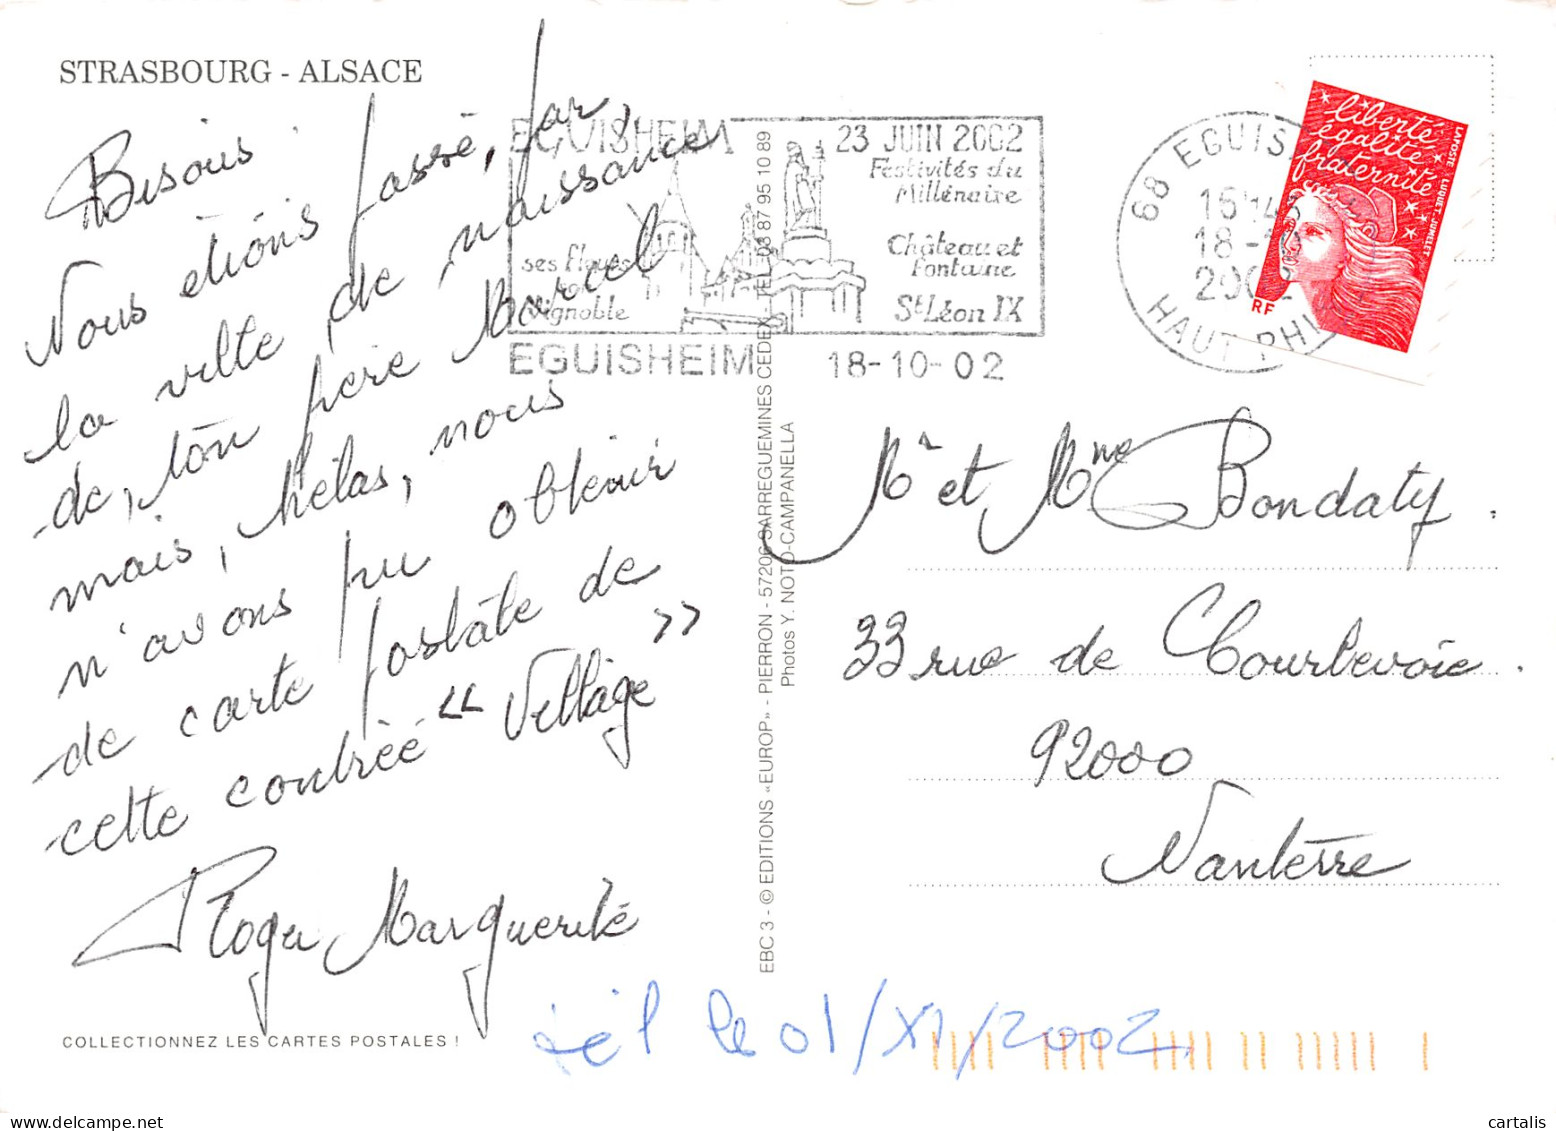 STRASBOURG - ALSACE
Bisous
Nous étions passé, par
la ville de naissance
de, ton père Marcel
mais, hélas, nous
n'avons pu obtenir
de carte postale de
cette contrée « Village »
Roger Marguerite
COLLECTIONNEZ LES CARTES POSTALES !
EGUISHEIM
23 JUIN 2002
Festivités du
Millénaire
Château et
Fontaine
St Léon IX
ses fleurs
son
vignoble
EGUISHEIM
18-10-02
68 EGUIS
18 -10
2002
HAUT RHI
liberté
égalité
fraternité
RF
LA POSTE LUQUET-JUMELET
EBC 3 - © EDITIONS «EUROP» - PIERRON - 57206 SARREGUEMINES CEDEX - TEL 03 87 95 10 89
Photos Y. NOTO-CAMPANELLA
Mr et Mme Bondaty.
33 rue de Courbevoie.
92000
Nanterre
tél le 01/XI/2002
cartalis